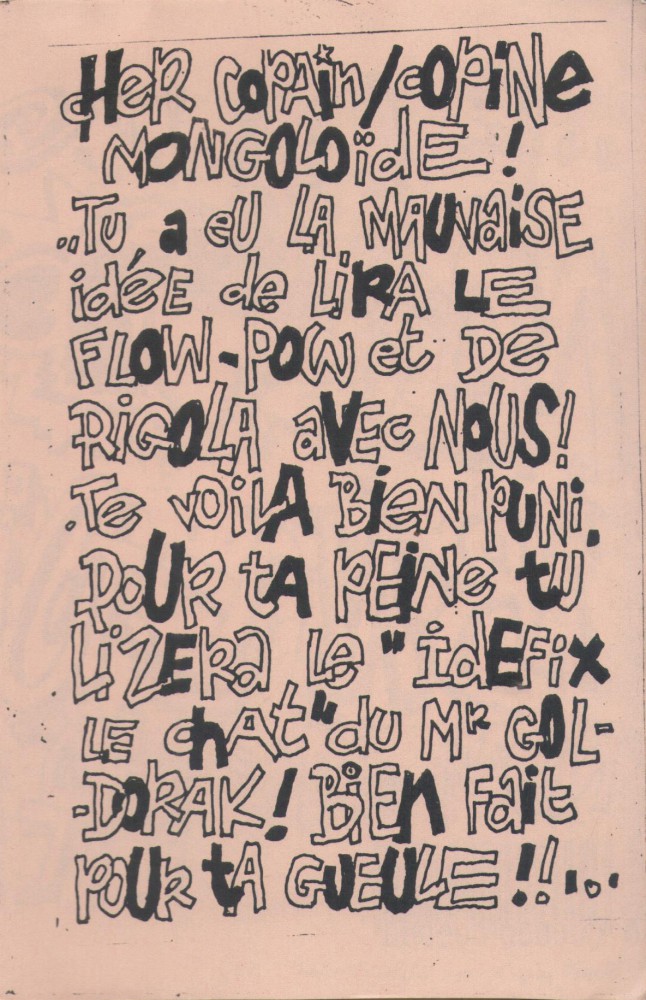 CHER COPAIN/COPINE
MONGOLOÏDE !
..TU a eU LA MAUVAISE
idéE de LiRA LE
FLOW-POW et De
RiGOLA aVEc NOUS!
.Te VOiLA BiEN PUNi,
POUR tA PEiNe tU
LiZERa Le "IdEFix
LE chAT" du MR GOL-
-DORAK! BiEn Fait
POUR tA GUEULE!!...